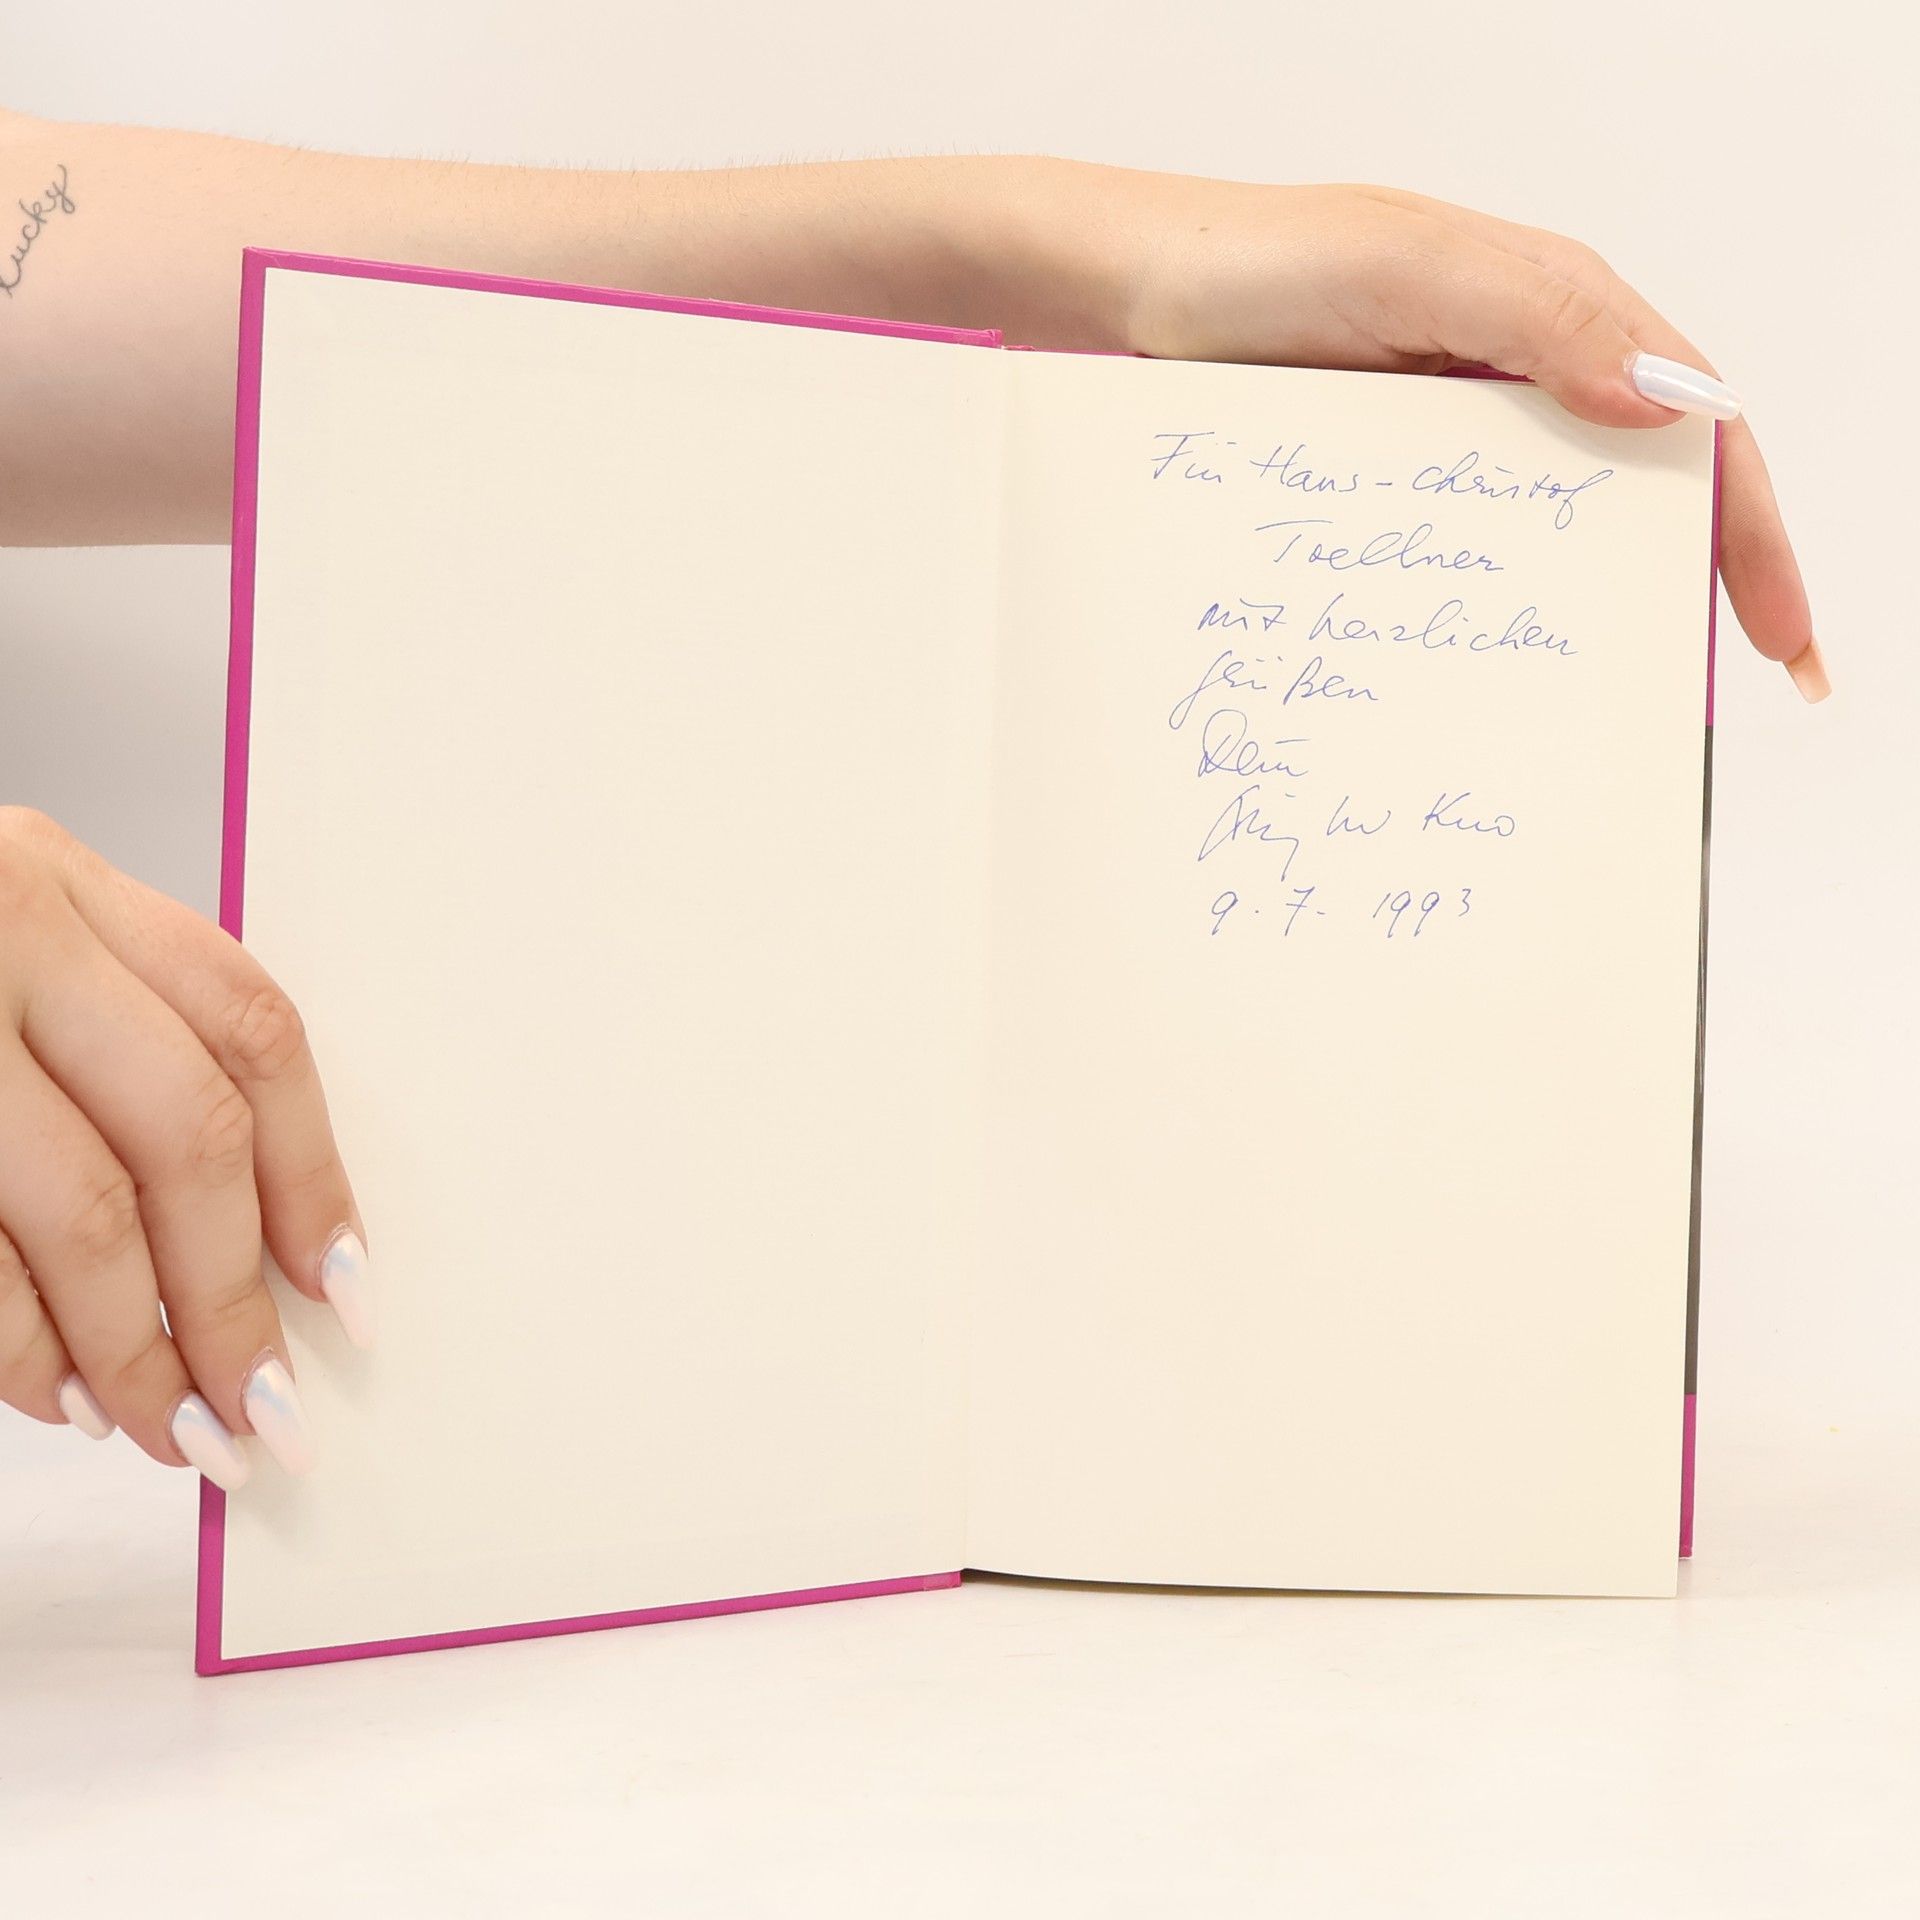 lucky
Für Hans-Christof
Toellner
mit herzlichen
Grüßen
Dein
Xing Hu Kuo
9.7. 1993